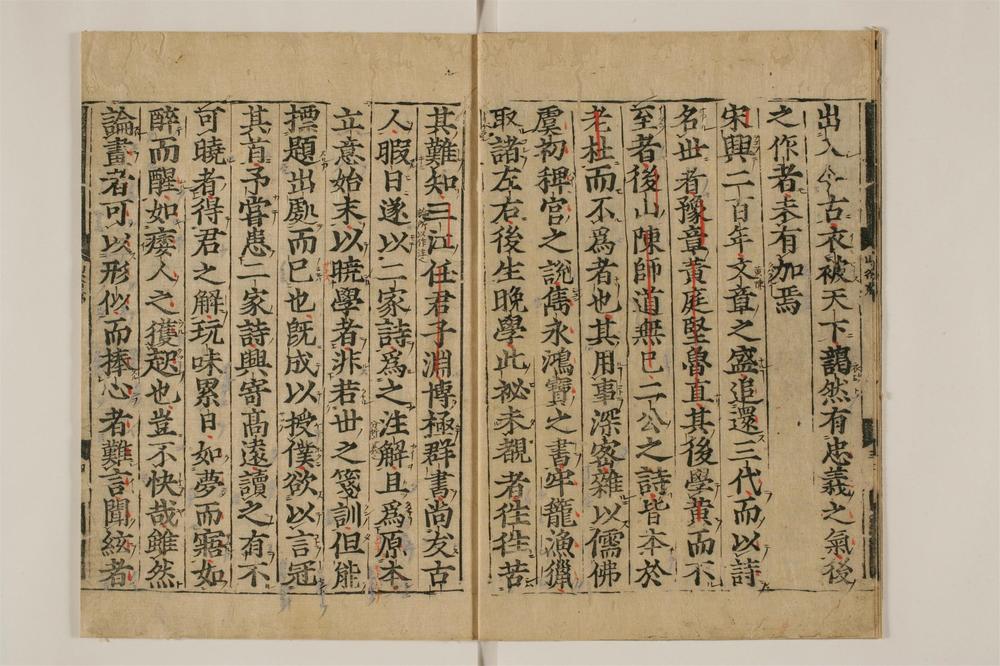 出入今古衣被天下藹然有忠義之氣後
之作者未有加焉
宋興二百年文章之盛追還三代而以詩
名世者豫章黃庭堅魯直其後學黃而不
至者後山陳師道無已二公之詩皆本於
老杜而不爲者也其用事深密雜以儒佛
虞初稗官之說雋永鴻寶之書牢籠漁獵
取諸左右後生晚學此祕未覩者徃徃苦
其難知三江任君子淵博極群書尚友古
人暇日遂以二家詩爲之注解且爲原本
立意始末以曉學者非若世之箋訓但能
摽題出處而已也旣成以授僕欲以言冠
其首予嘗患二家詩興寄髙遠讀之有不
可曉者得君之解玩味累日如夢而寤如
醉而醒如痿人之獲起也豈不快哉雖然
論畫者可以形似而捧心者難言聞絃者